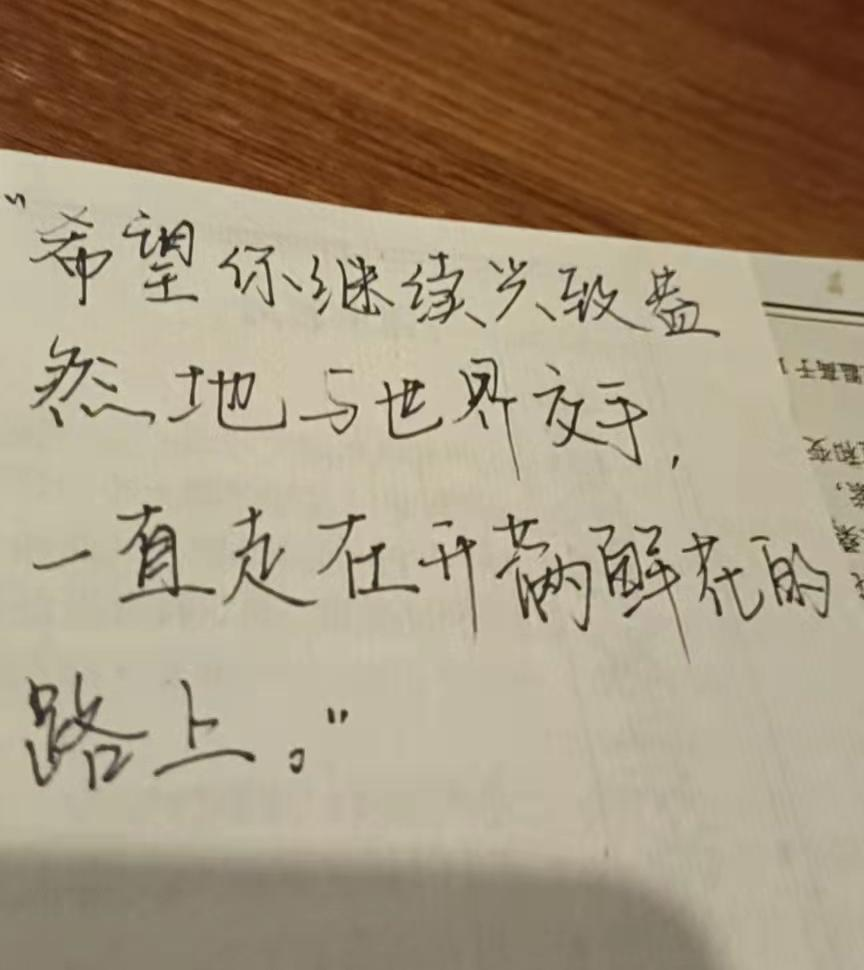 "希望你继续兴致盎
然地与世界交手,
一直走在开满鲜花的
路上。"